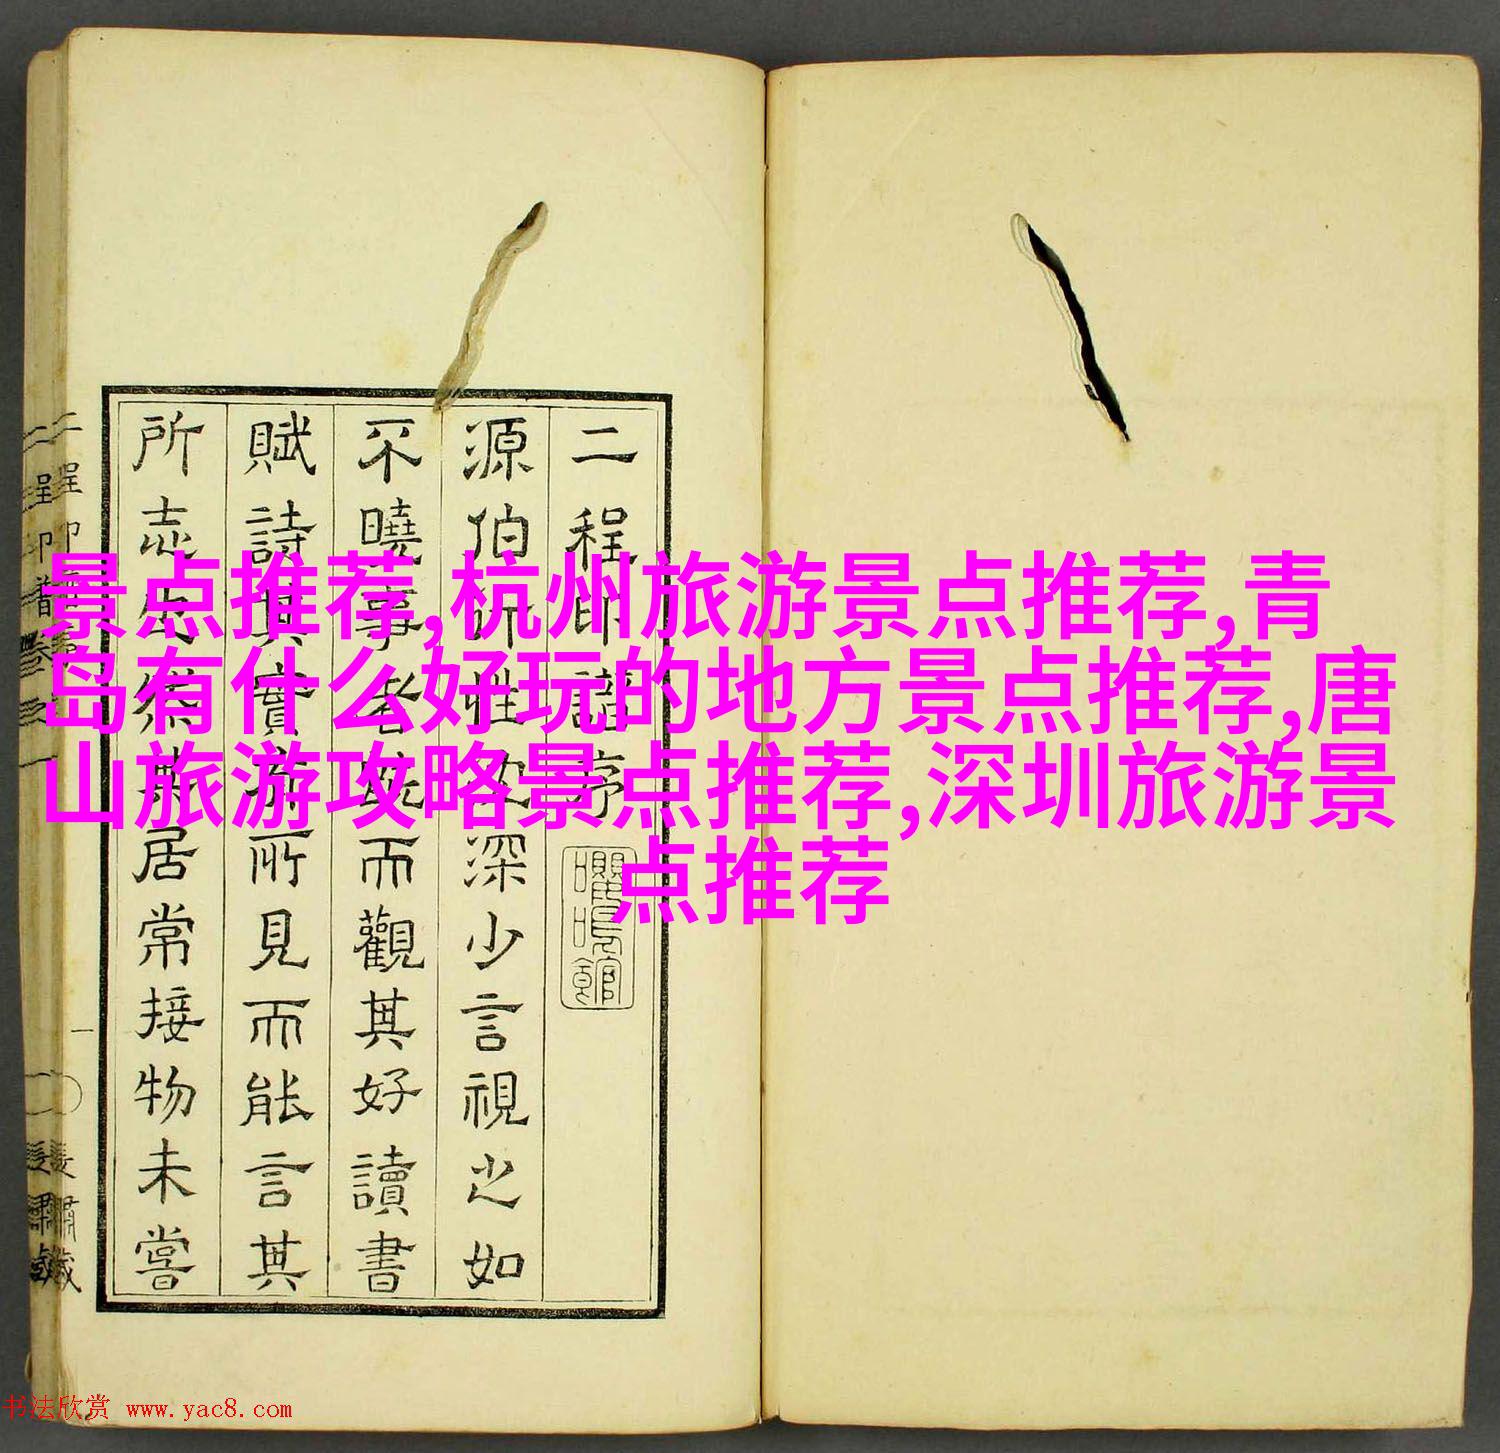 二程印譜序
源伯所性沈深少言視之如
不曉事者既而觀其好讀書
賦詩其實於所見而能言其
所志与
居常接物未嘗
景点推荐,杭州旅游景点推荐,青
岛有什么好玩的地方景点推荐,唐
山旅游攻略景点推荐,深圳旅游景
点推荐
书法欣赏 www.yac8.com